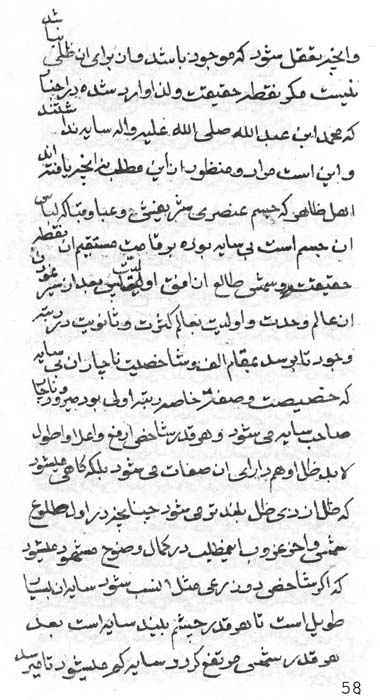 وانچه تعقل شود که موجود باشد و ان برای ان ظلی
نیست مکر نقطه حقیقت ولذا وارد شده در اخبار
که محمد ابن عبد الله صلی الله علیه واله سایه نداشتند
و این است مراد و منظور از این مطلب نه انچه یافته اند
اهل ظاهر که جسم عنصری سر بهشتی و عبا و قبا که لباس
ان جسم است بی سایه بوده بر قامت مستقیم ان نقطه
حقیقت و شمس طالع از افق اولیت بعد از سیر
ان عالم وحدت و اولیت بعالم کثرت و ثانویت در رتبه
وجود تا برسد بمقام الف و شاخصیت ناچار ان بی سایه
که خصیصت و صفت خاصه رتبه اولی بود میرود و ناچار
صاحب سایه می شود و هر قدر شاخص ارفع و اعلا و اطول
لابد ظل او هم دارای ان صفات می شود بلکه کاهی میشود
که ظل از ذی ظل بلند تر می شود چنانچه در اول طلوع
شمس و اخر غروب این مطلب در کمال وضوح مشهود میشود
که اکر شاخصی دو زرعی مثلا نصب شود سایه ان بسیار
طویل است تا هر قدر چشم ببیند سایه است بعد
هر قدر شمس مرتفع کردد سایه کم میشود تا میرسد
58